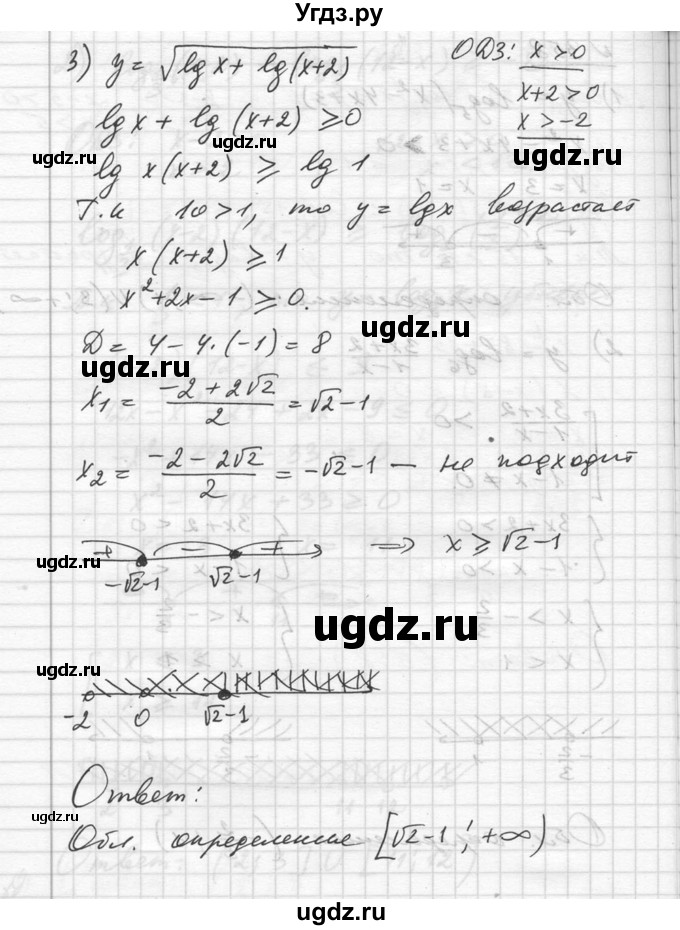 Угдз.ру
3) y = √(lg x + lg(x+2))
ОДЗ: x > 0
x+2 > 0
x > -2
lg x + lg (x+2) ≥ 0
ugdz.ru
ugdz.ru
ugdz.ru
lg x(x+2) ≥ lg 1
Т.к 10 > 1, то y = lg x возрастает
x(x+2) ≥ 1
x² + 2x - 1 ≥ 0.
ugdz.ru
D = 4 - 4·(-1) = 8
ugdz.ru
x₁ = (-2 + 2√2)/2 = √2 - 1
x₂ = (-2 - 2√2)/2 = -√2 - 1 — не подходит
+ − + ⇒ x ≥ √2 - 1
ugdz.ru
-√2-1 √2-1
ugdz.ru
ugdz.ru
-2 0 √2-1
Ответ:
ugdz.ru
Обл. определение [√2-1; +∞)
ugdz.ru
ugdz.ru